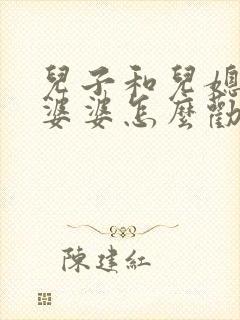 兒子和兒媳
婆婆怎麼勸
陳建紅